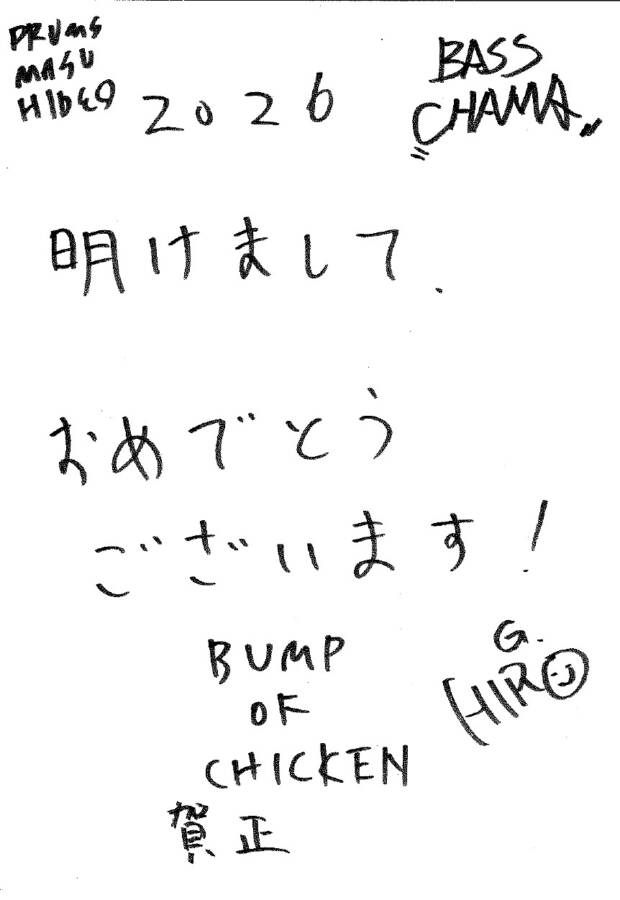 DRUMS
MASU
HIDEO
2026
BASS
CHAMA
明けまして
おめでとう
ございます!
BUMP
OF
CHICKEN
G.
HIRO
賀正